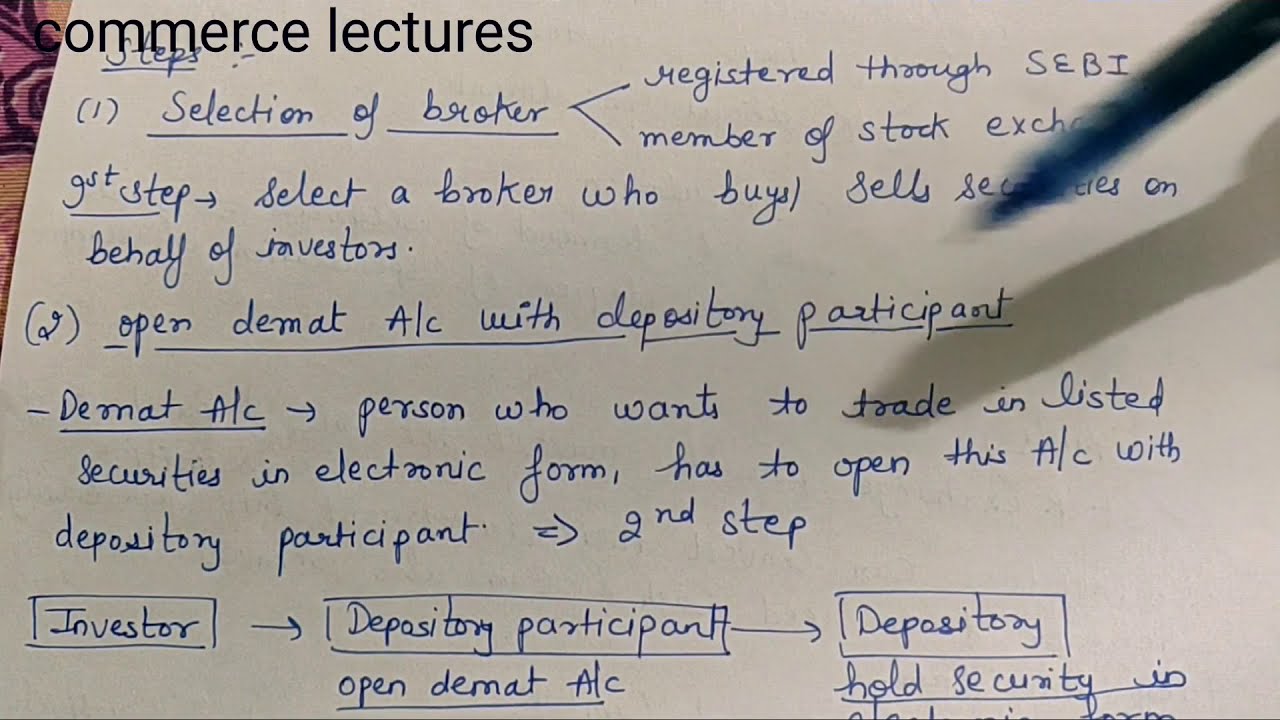 commerce lectures
Steps :-
(1) Selection of broker
registered through SEBI
member of stock
Ist step → select a broker who buys/ sells securities on
behalf of investors.
(2) open demat A/c with depository participant
- Demat A/c → person who wants to trade in listed
securities in electronic form, has to open this A/c with
depository participant. ⇒ 2nd step
Investor → Depository participant → Depository
open demat A/c
hold security in
electronic form